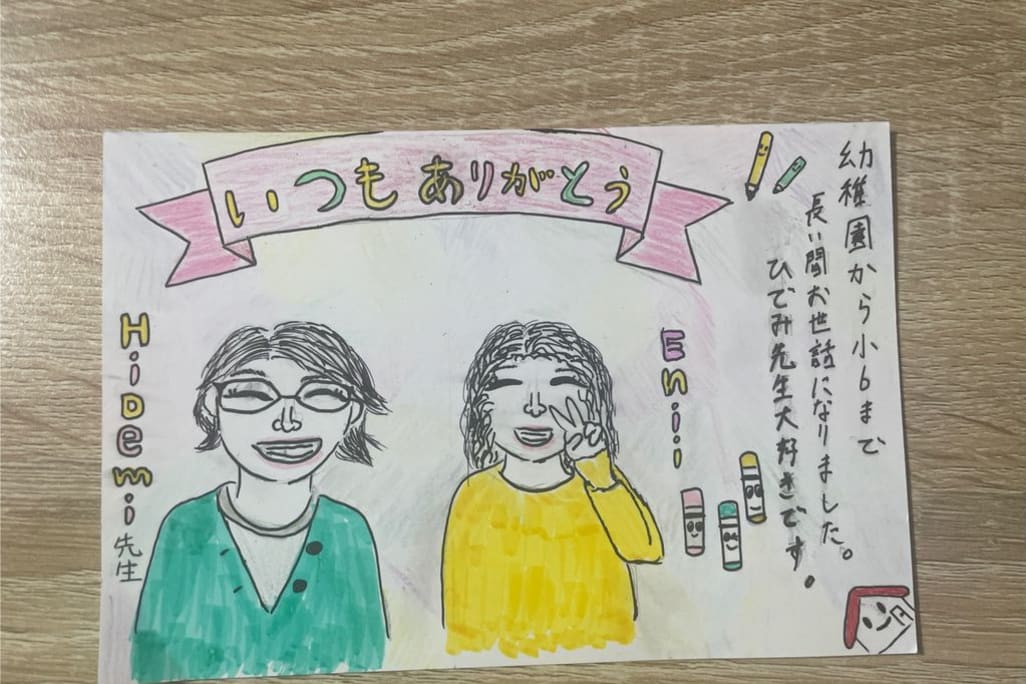 いつもありがとう
幼稚園から小6まで
長い間お世話になりました。
ひでみ先生大好きです。
Hidemi先生
Enii